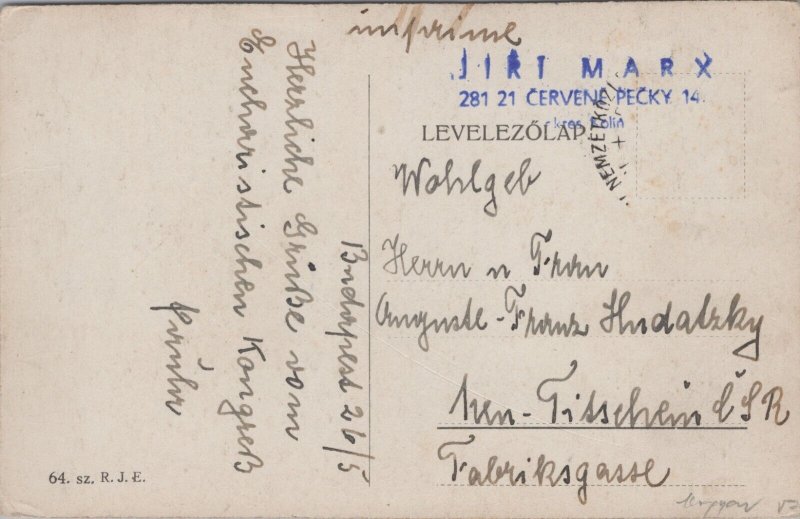 imprimé
JIŘÍ MARX
281 21 ČERVENÉ PEČKY 14.
okres Kolín
LEVELEZŐLAP
NEMZETKÖZI
Budapest 26/5
Herzliche Grüße vom
Eucharistischen Kongreß
Wohlgeb
Herrn u Frau
Auguste-Franz Hudatzky
Neu-Titschein ČSR
Fabriksgasse
64. sz. R. J. E.